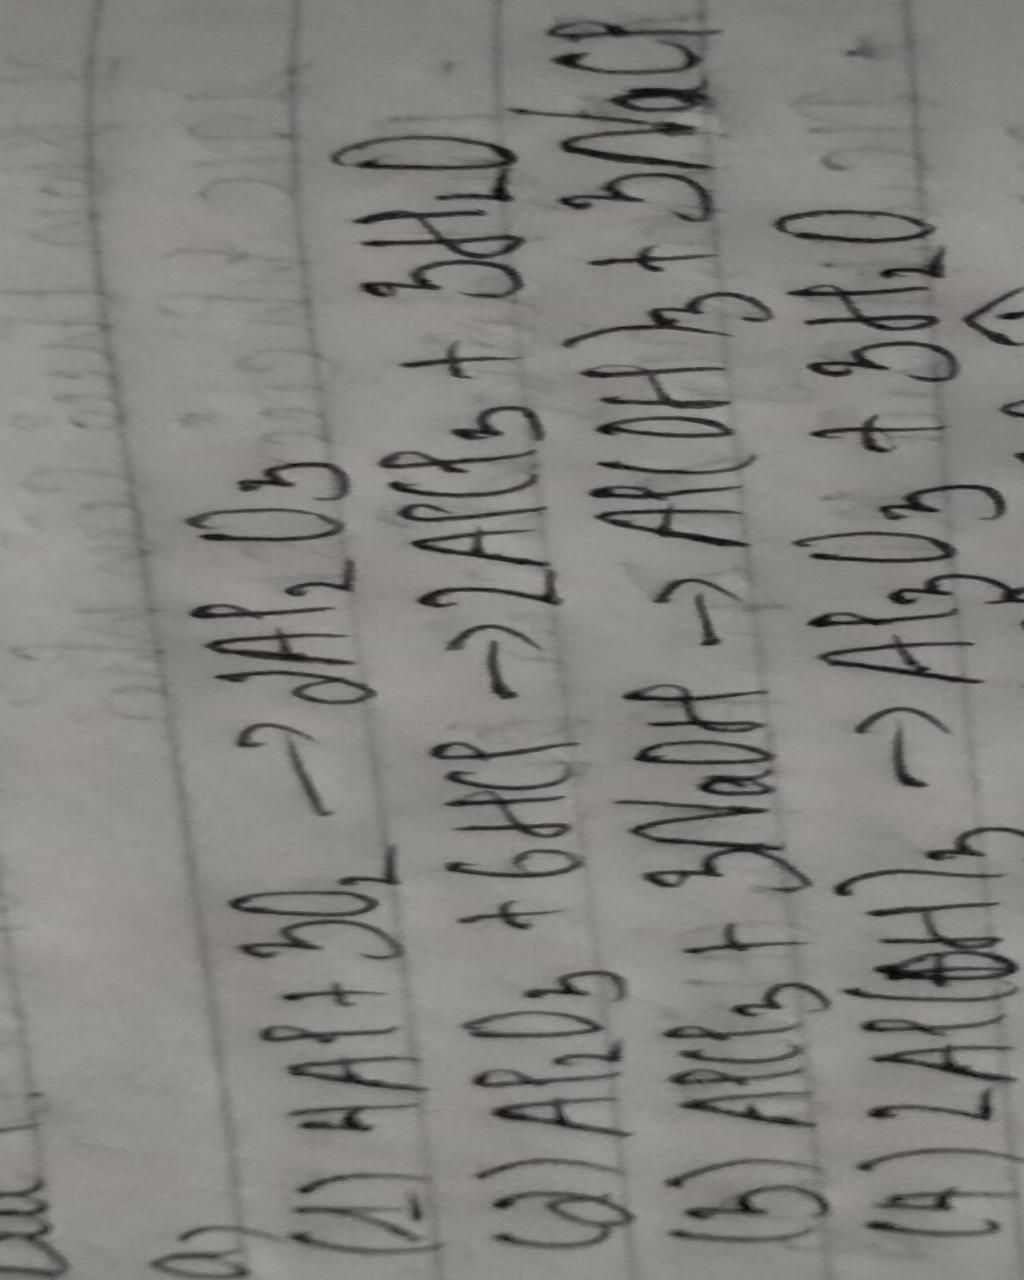 a)
(1) 4Al + 3O2 → 2Al2O3
(2) Al2O3 + 6HCl → 2AlCl3 + 3H2O
(3) AlCl3 + 3NaOH → Al(OH)3 + 3NaCl
(4) 2Al(OH)3 → Al3O3 + 3H2O